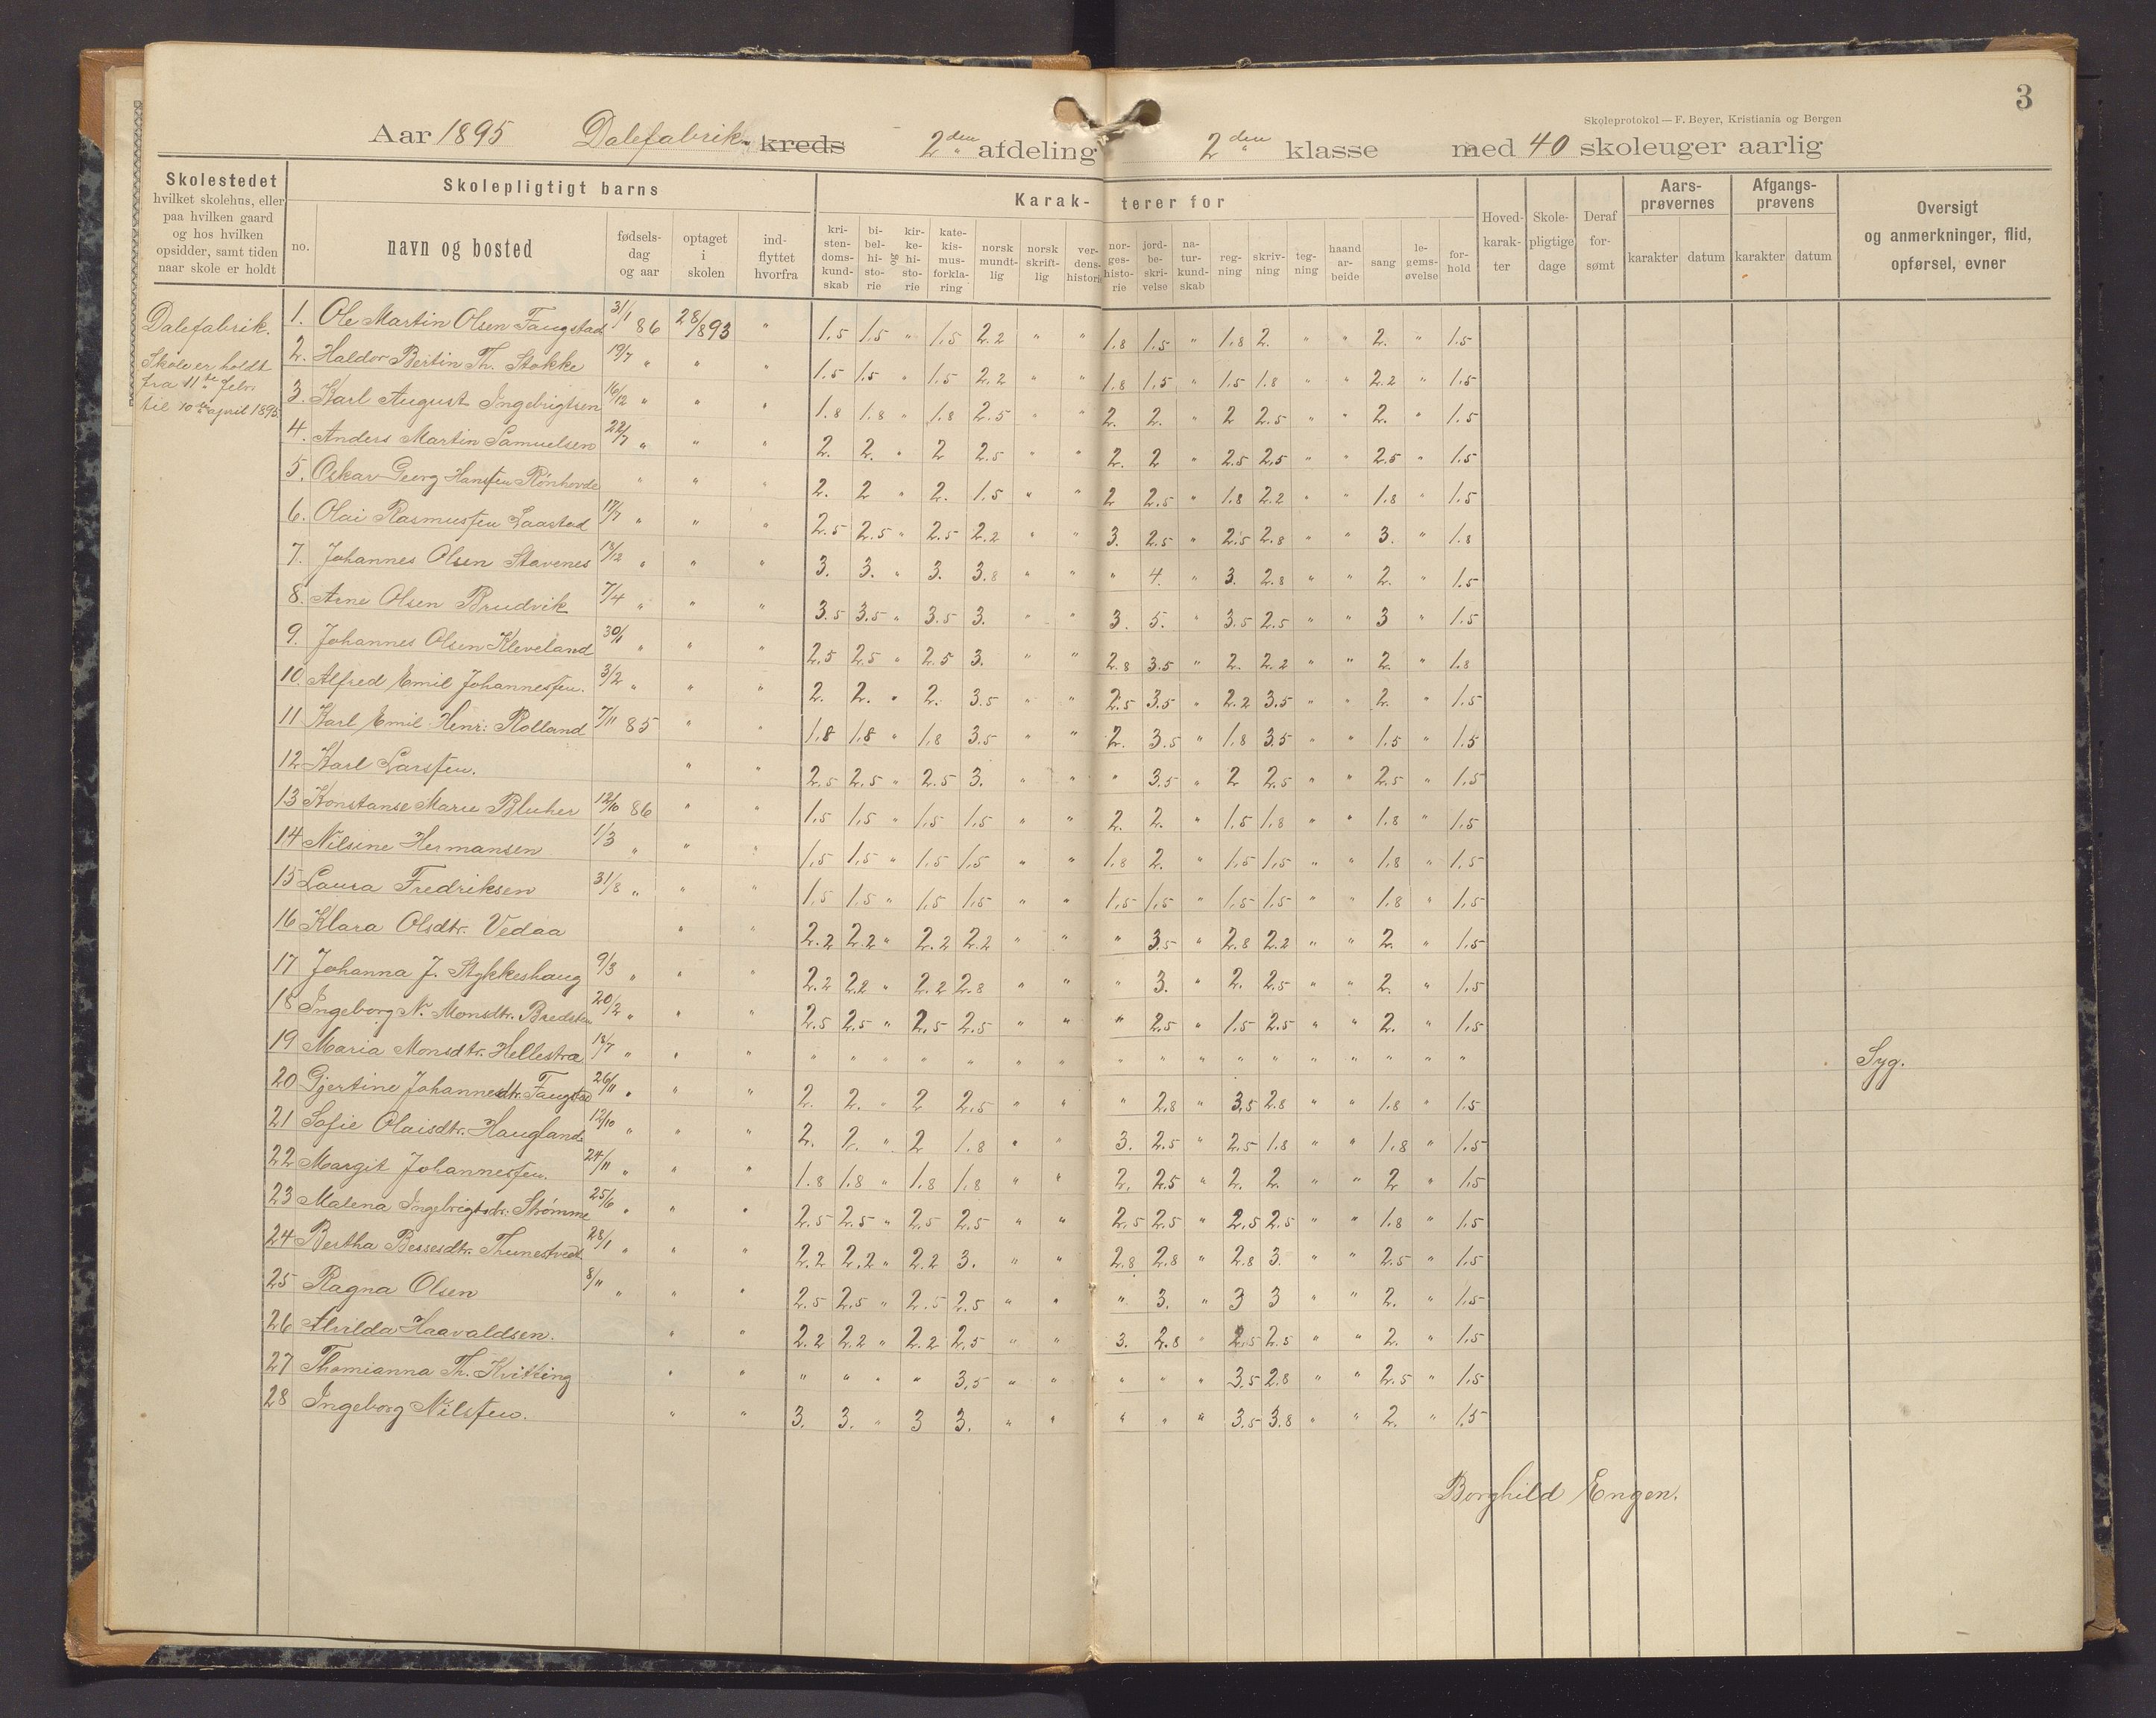 3
Skoleprotokol — F. Beyer, Kristiania og Bergen
Aar 1895 Dalefabrik. kreds 2den afdeling 2den klasse med 40 skoleuger aarlig
Skolestedet hvilket skolehus, eller paa hvilken gaard og hos hvilken opsidder, samt tiden naar skole er holdt
Skolepligtigt barns
no. navn og bosted fødsels-dag og aar optaget i skolen ind-flyttet hvorfra
Karak- terer for
kri-sten-doms-kund-skab bi-bel-hi-sto-rie og kir-ke-hi-sto-rie kate-kis-mus-forkla-ring norsk mundt-lig norsk skrift-lig ver-dens-histori nor-ges-histo-rie jord-be-skri-velse na-tur-kund-skab reg-ning skriv-ning teg-ning haand ar-beide sang le-gems-øvelse for-hold
Hoved-karak-ter Skole-pligtige dage Deraf for-sømt
Aars-prøvernes karakter datum
Afgangs-prøvens karakter datum
Oversigt og anmerkninger, flid, opførsel, evner
Dalefabrik.
Skole er holdt
fra 11te febr.
til 10de april 1895.
1. Ole Martin Olsen Faugstad 31/1 86 28/8 93 " 1.5 1.5 " 1.5 2.2 " " 1.8 1.5 " 1.8 2. " " 2. " 1.5
2. Haldor Bertin Th. Stokke 19/7 " " " 1.5 1.5 " 1.5 2.2 " " 1.8 1.5 " 1.5 1.8 " " 2.2 " 1.5
3. Karl August Ingebrigtsen 16/12 " " " 1.8 1.8 " 1.8 2.5 " " 2. 2. " 2 2.5 " " 2. " 1.5
4. Anders Martin Samuelsen 22/7 " " " 2. 2. " 2 2.5 " " 2. 2 " 2.5 2.5 " " 2.5 " 1.5
5. Oskar Georg Hansen Rønhovde " " " 2. 2 " 2. 1.5 " " 2 2.5 " 1.8 2.2 " " 1.8 " 1.5
6. Olai Rasmussen Laastad 17/7 " " " 2.5 2.5 " 2.5 2.2 " " 3. 2.5 " 2.5 2.8 " " 3. " 1.8
7. Johannes Olsen Stavenes 18/12 " " " 3. 3. " 3. 3.8 " " " 4. " 3. 2.8 " " 2. " 1.5
8. Arne Olsen Brudvik 7/4 " " " 3.5 3.5 " 3.5 3. " " 3. 5. " 3.5 2.5 " " 3 " 1.5
9. Johannes Olsen Kleveland 30/1 " " " 2.5 2.5 " 2.5 3. " " 2.8 3.5 " 2. 2.2 " " 2. " 1.8
10. Alfred Emil Johannessen. 3/2 " " " 2. 2. " 2. 3.5 " " 2.5 3.5 " 2.2 3.5 " " 2. " 1.5
11 Karl Emil Henr: Rolland 7/11 85 " " 1.8 1.8 " 1.8 3.5 " " 2. 3.5 " 1.8 3.5 " " 1.5 " 1.5
12 Karl Larssen. " " 2.5 2.5 " 2.5 3. " " " 3.5 " 2 2.5 " " 2.5 " 1.5
13 Konstanse Marie Blucher 12/10 86 " " 1.5 1.5 " 1.5 1.5 " " 2. 2. " 1.5 1.8 " " 1.8 " 1.5
14 Nilsine Hermansen 1/3 " " " 1.5 1.5 " 1.5 1.5 " " 1.8 2. " 1.5 1.5 " " 1.8 " 1.5
15 Laura Fredriksen 31/8 " " " 1.5 1.5 " 1.5 1.5 " " 1.5 1.5 " 1.5 1.5 " " 1.8 " 1.5
16 Klara Olsdtr. Vedaa " " 2.2 2.2 " 2.2 2.2 " " " 3.5 " 2.8 2.2 " " 2. " 1.5
17 Johanna J. Stykkeshaug 9/3 " " " 2.2 2.2 " 2.2 2.8 " " " 3. " 2. 2.5 " " 2. " 1.5
18 Ingeborg N. Monsdtr. Bredsteen 20/2 " " " 2.5 2.5 " 2.5 2.5 " " " 2.5 " 1.5 2.5 " " 2. " 1.5
19 Maria Monsdtr. Hellestra 18/7 " " " " " " " " " " " " " " " " " " " " Syg.
20 Gjertine Johannesdtr. Faugstad 26/11 " " " 2. 2. " 2 2.5 " " " 2.8 " 3.5 2.8 " " 1.8 " 1.5
21 Sofie Olaisdtr. Haugland 12/10 " " " 2. 2. " 2 1.8 " " 3. 2.5 " 2.5 1.8 " " 1.8 " 1.5
22 Margit Johannessen. 24/11 " " " 1.8 1.8 " 1.8 1.8 " " 2. 2.5 " 2. 2. " " 2 " 1.5
23 Malena Ingebrigtsdr: Strømme 25/6 " " " 2.5 2.5 " 2.5 2.5 " " 2.5 2.5 " 2.5 2.5 " " 1.8 " 1.5
24 Bertha Bessesdtr. Thunestvedt 28/1 " " " 2.2 2.2 " 2.2 3. " " 2.8 2.8 " 2.8 3. " " 2.5 " 1.5
25 Ragna Olsen 8/11 " " " 2.5 2.5 " 2.5 2.5 " " " 3. " 3 3 " " 2. " 1.5
26 Alvilda Haavaldsen. " " 2.2 2.2 " 2.2 2.5 " " 3. 2.8 " 2.5 2.5 " " 2. " 1.5
27 Thomianna Th. Kvitting " " " " " " 3.5 " " " " " 3.5 2.8 " " 2.5 " 1.5
28 Ingeborg Nilssen. " " 3. 3. " 3 3. " " " " " 3.5 3.8 " " 2. " 1.5
Borghild Engen.